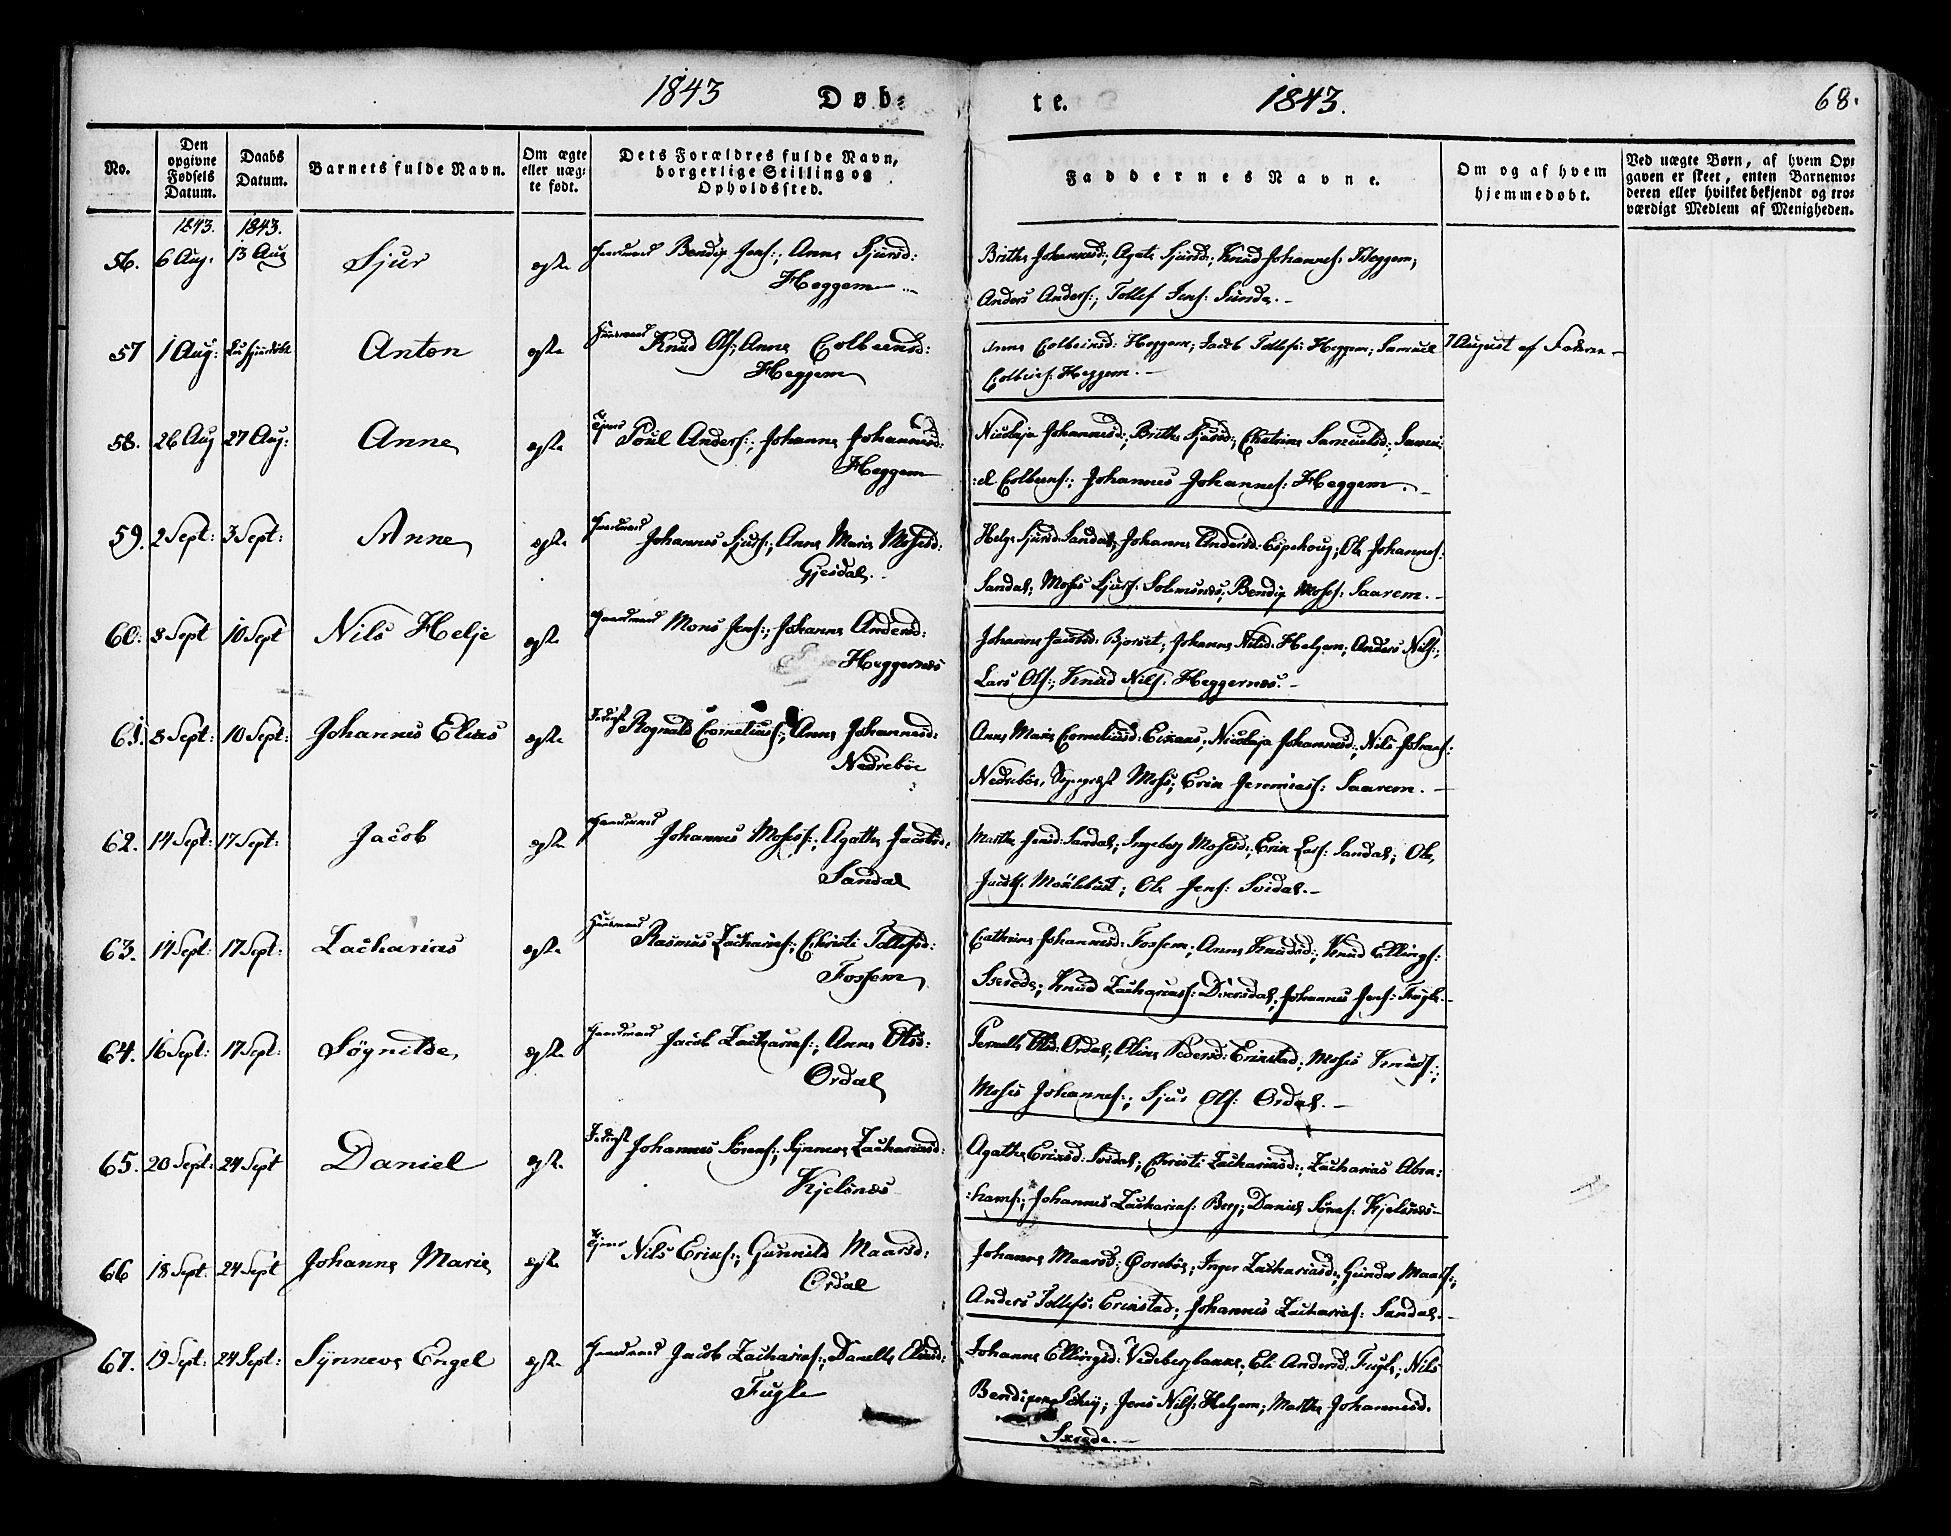 1843 Døb= te. 1843. 68.
No.
Den opgivne Fødsels Datum.
Daabs Datum.
Barnets fulde Navn.
Om ægte eller uægte født.
Dets Forældres fulde Navn, borgerlige Stilling og Opholdssted.
Faddernes Navne.
Om og af hvem hjemmedøbt.
Ved uægte Børn, af hvem Opgaven er skeet, enten Barnemoderen eller hvilket bekjendt og troværdigt Medlem af Menigheden.
1843. 1843.
56. 6 Aug. 13 Aug Sjur egte Gaardmand Bendix Jens:, Anne Sjursd:
Heggem
Brithe Johannesd:, Agate Sjursd:, Knud Johannes: Heggem,
Anders Anders:, Tollef Jens: Sunde.
57 1 Aug: Anton egte Huusmand Knud Ols:, Anne Colbeinsd:
Heggem
Anne Colbeinsd: Heggem; Jacob Tollefs: Heggem; Samuel
Colbeins: Heggem.
7 August af Faderen
58. 26 Aug 27 Aug: Anne egte Poul Anders:, Johanne Johannesd:
Heggem
Nicolaja Johannesd:, Brithe Sjursd:, Chatrine Samuelsd:, Samu:
:el Colbens:, Johannes Johannes: Heggem.
59. 2 Sept: 3 Sept: Anne egte Gaardmand Johannes Sjurs:, Anne Marie Mosesd:
Gjesdal.
Helge Sjursd: Sandal, Johanne Andersd: Espehoug; Ole Johannes:
Sandal; Moses Sjurs: Solemsnes; Bendix Moses: Saarem.
60. 8 Sept 10 Sept Nils Helje egte Gaardmand Mons Jens:, Johanne Andersd:
Heggernes
Johanne Jacobsd: Bjorset, Johanne Nilsd: Helgem; Anders Nils:,
Lars Ols:, Knud Nils: Heggernes.
61. 8 Sept: 10 Sept: Johannes Elias egte Rognald Cornelius:, Anne Johannesd:
Nedrebøe
Anne Marie Corneliusd: Eikaas, Nicolaja Johannesd:, Nils Johans:
Nedrebøe, Moses, Erik Jeremias: Saarem.
62. 14 Sept: 17 Sept: Jacob egte Gaardmand Johannes Moses:, Agathe Jacobsd:
Sandal
Marthe Jensd: Sandal, Ingeborg Mosesd:, Erik Lars: Sandal; Ole
Jacobs: Ole Jens: Svidal.
63. 14 Sept: 17 Sept: Zacharias egte Huusmand Rasmus Zacharias:, Christi Tollefsd:
Fossem
Cathrine Johannesd: Fossem; Anne Knudsd:, Knud Ellings:
Skrede; Knud Zacharias: Dvergsdal, Johannes Jens: Fugle.
64. 16 Sept: 17 Sept: Søgnilde egte Gaardmand Jacob Zacharias:, Anne Olsd:
Ordal
Pernelle Olsd: Ordal, Oline Pedersd: Erikstad; Moses Knuds:,
Moses Johannes:, Sjur Ols: Ordal.
65. 20 Sept: 24 Sept Daniel egte Johannes Sørens:, Synneve Zachariasd:
Kjelsnes
Agathe Eriksd: Svidal; Christi Zachariasd:, Zacharias Abra:
:hams:, Johannes Zacharias: Berg; Daniel Sørens: Kjelsnes
66 18 Sept: 24 Sept Johanne Marie egte Nils Eriks:, Gunnild Maarsd:
Ordal
Johanne Maarsd: Inger Zachariasd:, Gunder Maars:,
Anders Tollefs: Erikstad; Johannes Zacharias: Sandal.
67. 19 Sept: 24 Sept: Synneve Engel egte Gaardmand Jacob Zacharias:, Danelle Olsd:
Fugle
Johanne Ellingsd: Vedebergbakke, Eli Andersd: Fugle; Nils
Bendixen Jens Nils: Helgem; Marthe Johannesd.
Skrede.